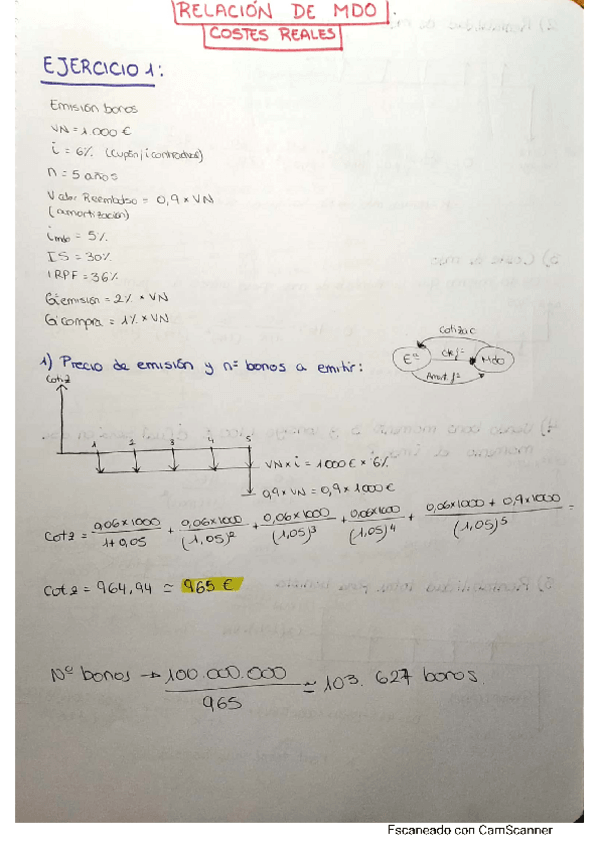 RELACIÓN DE MDO.
COSTES REALES
EJERCICIO 1:
Emisión bonos
VN = 1.000 €
i = 6% (cupón / i contractual)
n = 5 años
Valor Reembolso = 0,9 x VN
(amortización)
i mdo = 5%
IS = 30%
IRPF = 36%
G emisión = 2% x VN
G compra = 1% x VN
cotizac
Eª CK/i Mdo
Amort. f
1) Precio de emisión y nº bonos a emitir:
Cotz
1 2 3 4 5
VN x i = 1000 € x 6%
0,9 x VN = 0,9 x 1000 €
Cotz = 0,06x1000 / 1+0,05 + 0,06x1000 / (1,05)² + 0,06x1000 / (1,05)³ + 0,06x1000 / (1,05)⁴ + 0,06x1000 + 0,9x1000 / (1,05)⁵ =
Cotz = 964,94 ≃ 965 €
Nº bonos → 100.000.000 / 965 ≃ 103.627 bonos
Escaneado con CamScanner